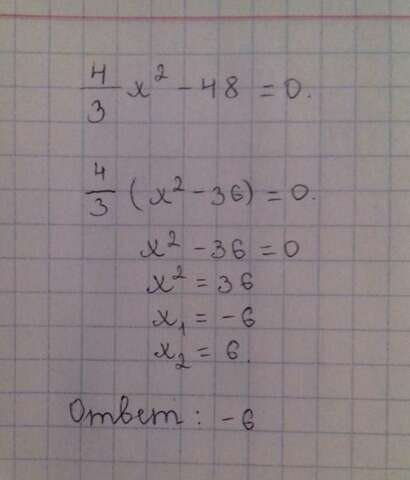 4/3 x² - 48 = 0.
4/3 (x² - 36) = 0.
x² - 36 = 0
x² = 36
x₁ = -6
x₂ = 6.
Ответ: -6